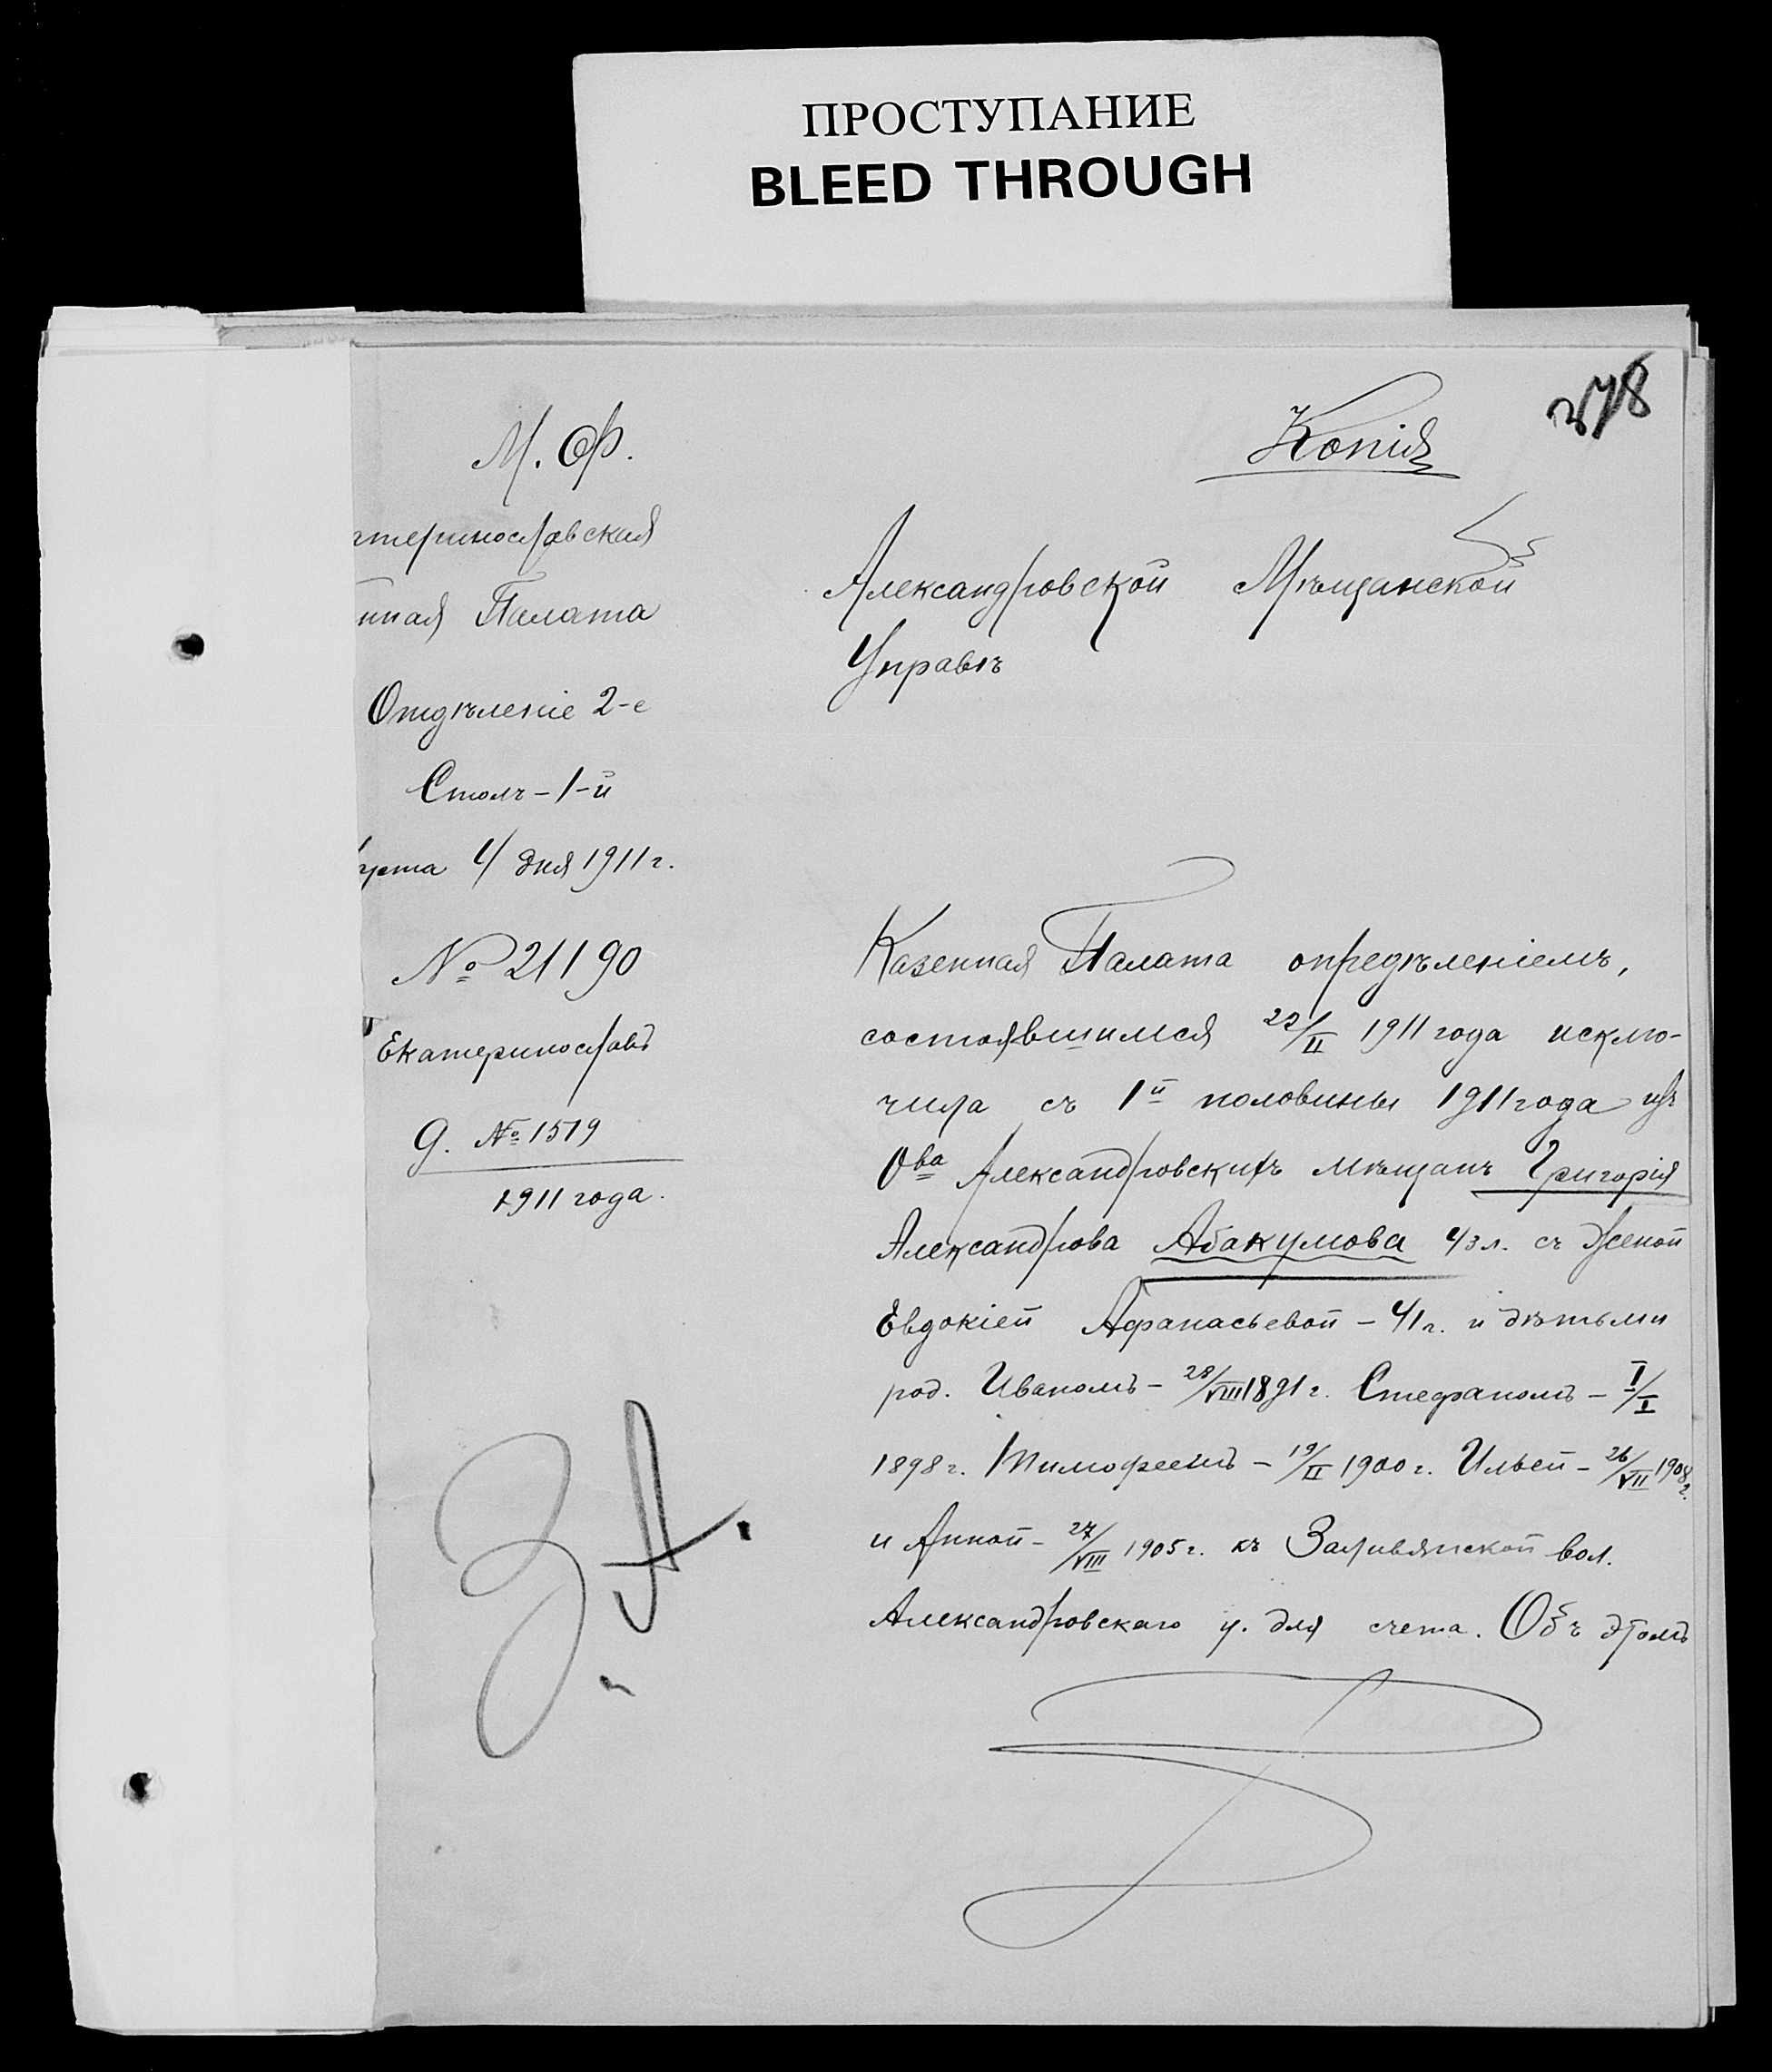 ПРОСТУПАНИЕ
BLEED THROUGH
278
Копія
М. Ф.
атеринославская
нная Палата
Отдѣленіе 2-е
Столъ – 1-й
густа 4 дня 1911 г.
№ 21190
Екатеринославъ
Д. № 1579
1911 года.
Александровской Мѣщанской
Управѣ
Казенная Палата опредѣленіемъ,
состоявшимся 22/II 1911 года исклю-
чила съ 1й половины 1911 года изъ
Ова Александровскихъ мѣщанъ Григорія
Александрова Абакумова 43 л. съ женой
Евдокіей Афанасьевой – 41 г. и дѣтьми
род. Иваномъ – 28/VIII 1891 г. Стефаномъ – I/I
1898 г. Тимофеемъ – 19/II 1900 г. Ильей – 26/VII 1908 г.
и Анной – 27/VIII 1905 г. къ Заливянской вол.
Александровскаго у. для счета. Объ этомъ